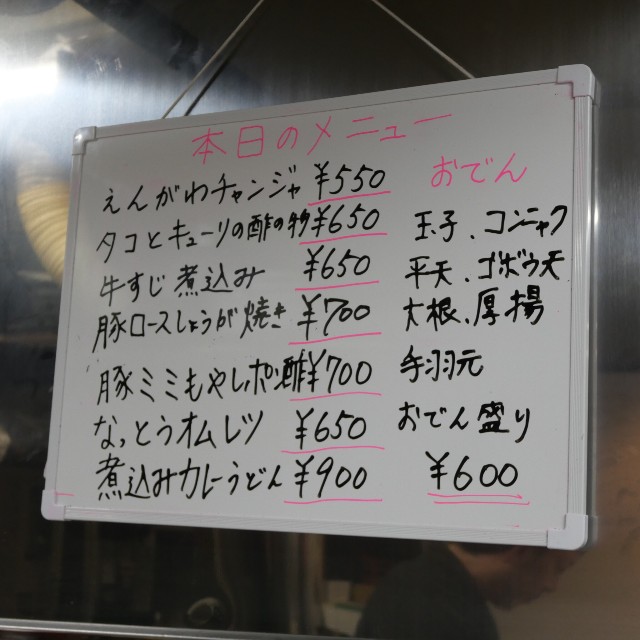 本日のメニュー
えんがわチャンジャ ¥550
タコとキューリの酢の物 ¥650
牛すじ煮込み ¥650
豚ロースしょうが焼き ¥700
豚ミミもやしポン酢 ¥700
なっとうオムレツ ¥650
煮込みカレーうどん ¥900
おでん
玉子、コンニャク
平天、ゴボウ天
大根、厚揚
手羽元
おでん盛り
¥600